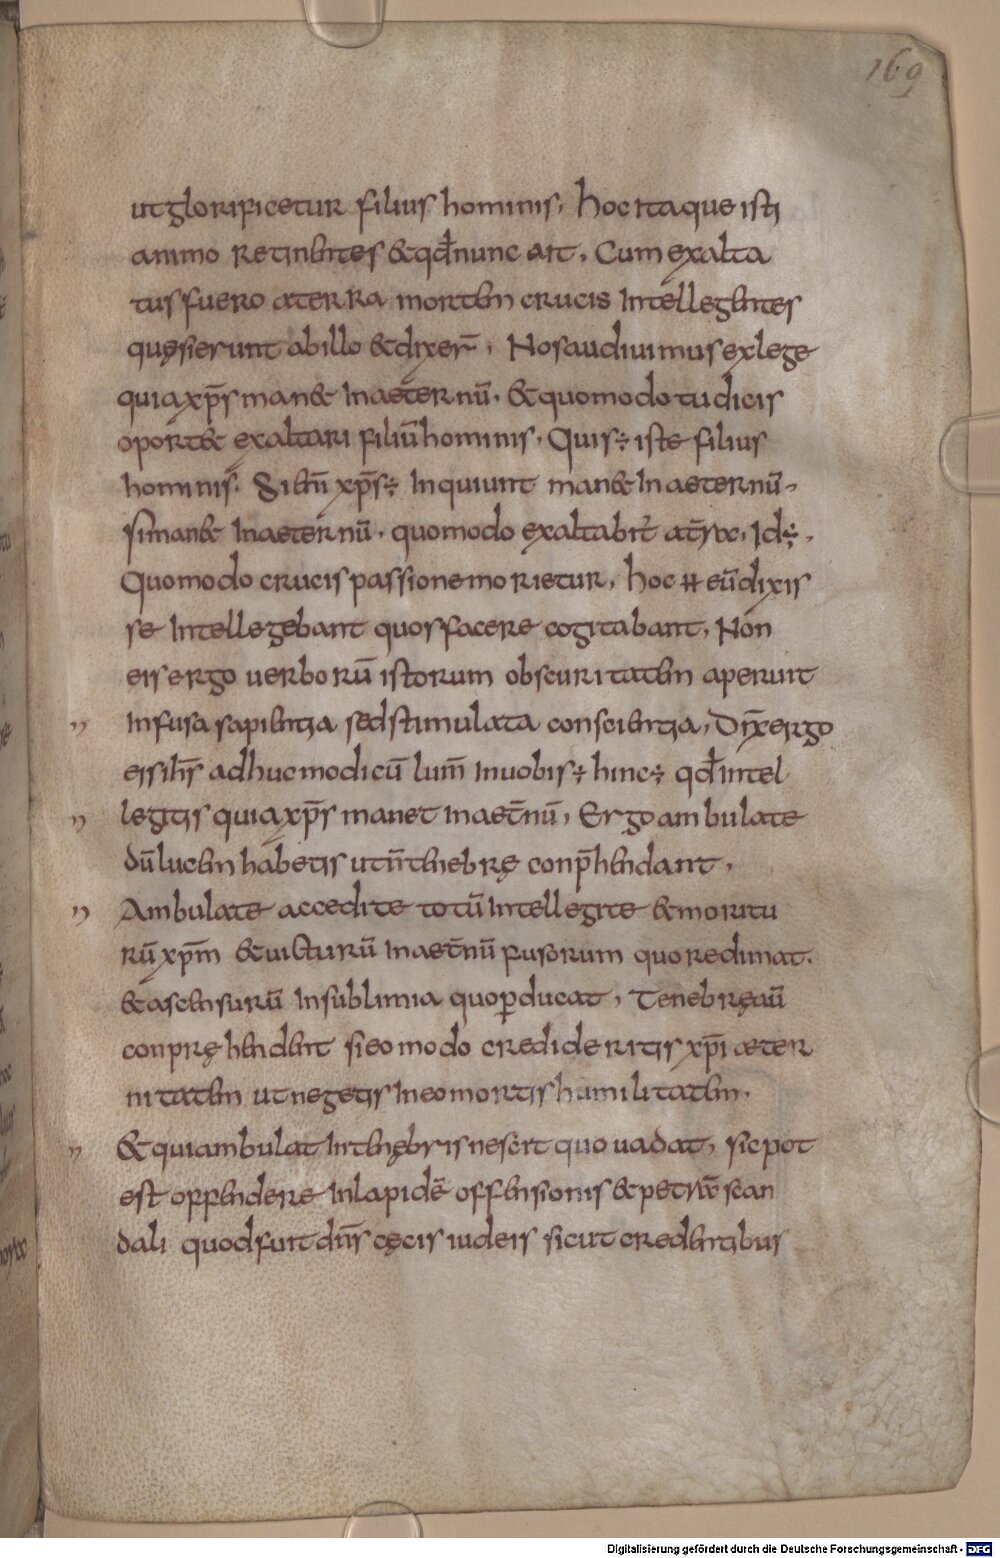 169
ut glorificetur filius hominis, hoc itaque isti
animo retinentes & qđ nunc ait, Cum exalta
tus fuero a terra mortem crucis intellegentes
quęsierunt ab illo & dixer̄, Nos audivimus ex lege
quia xp̄s man& in aeternū, & quomodo tu dicis
oport& exaltari filiū hominis, Quis ÷ iste filius
hominis. Si enī xp̄s ÷ inquiunt man& in aeternū,
si man& in aeternū, quomodo exaltabit̄ a t̄ra, Id ÷,
Quomodo crucis passione morietur, hoc ħ eū dixis
se intellegebant quos facere cogitabant, Non
eis ergo uerborū istorum obscuritatem aperuit
” infusa sapientia sed stimulata conscientia, Dix̄ ergo
eis ih̄s adhuc modicū lum̄ in uobis ÷ hinc ÷ qđ intel
” legitis quia xp̄s manet in aet̄nū, Ergo ambulate
dū lucem habetis ut n̄ tenebrę conp̄hendant,
” Ambulate accedite totū intellegite & moritu
rū xp̄m & uicturū in aet̄nū & fusorum quo redimat.
& ascensurū in sublimia quo ꝑducat, Tenebrę aū
conpręhendent si eo modo credideritis xp̄i aeter
nitatem ut negetis in eo mortis humilitatem,
” & qui ambulat in tenębris nescit quo uadat, sic pot
est offendere in lapidē offensionis & petrā scan
dali quod fuit dn̄s cęcis iudeis sicut credentibus
Digitalisierung gefördert durch die Deutsche Forschungsgemeinschaft - DFG